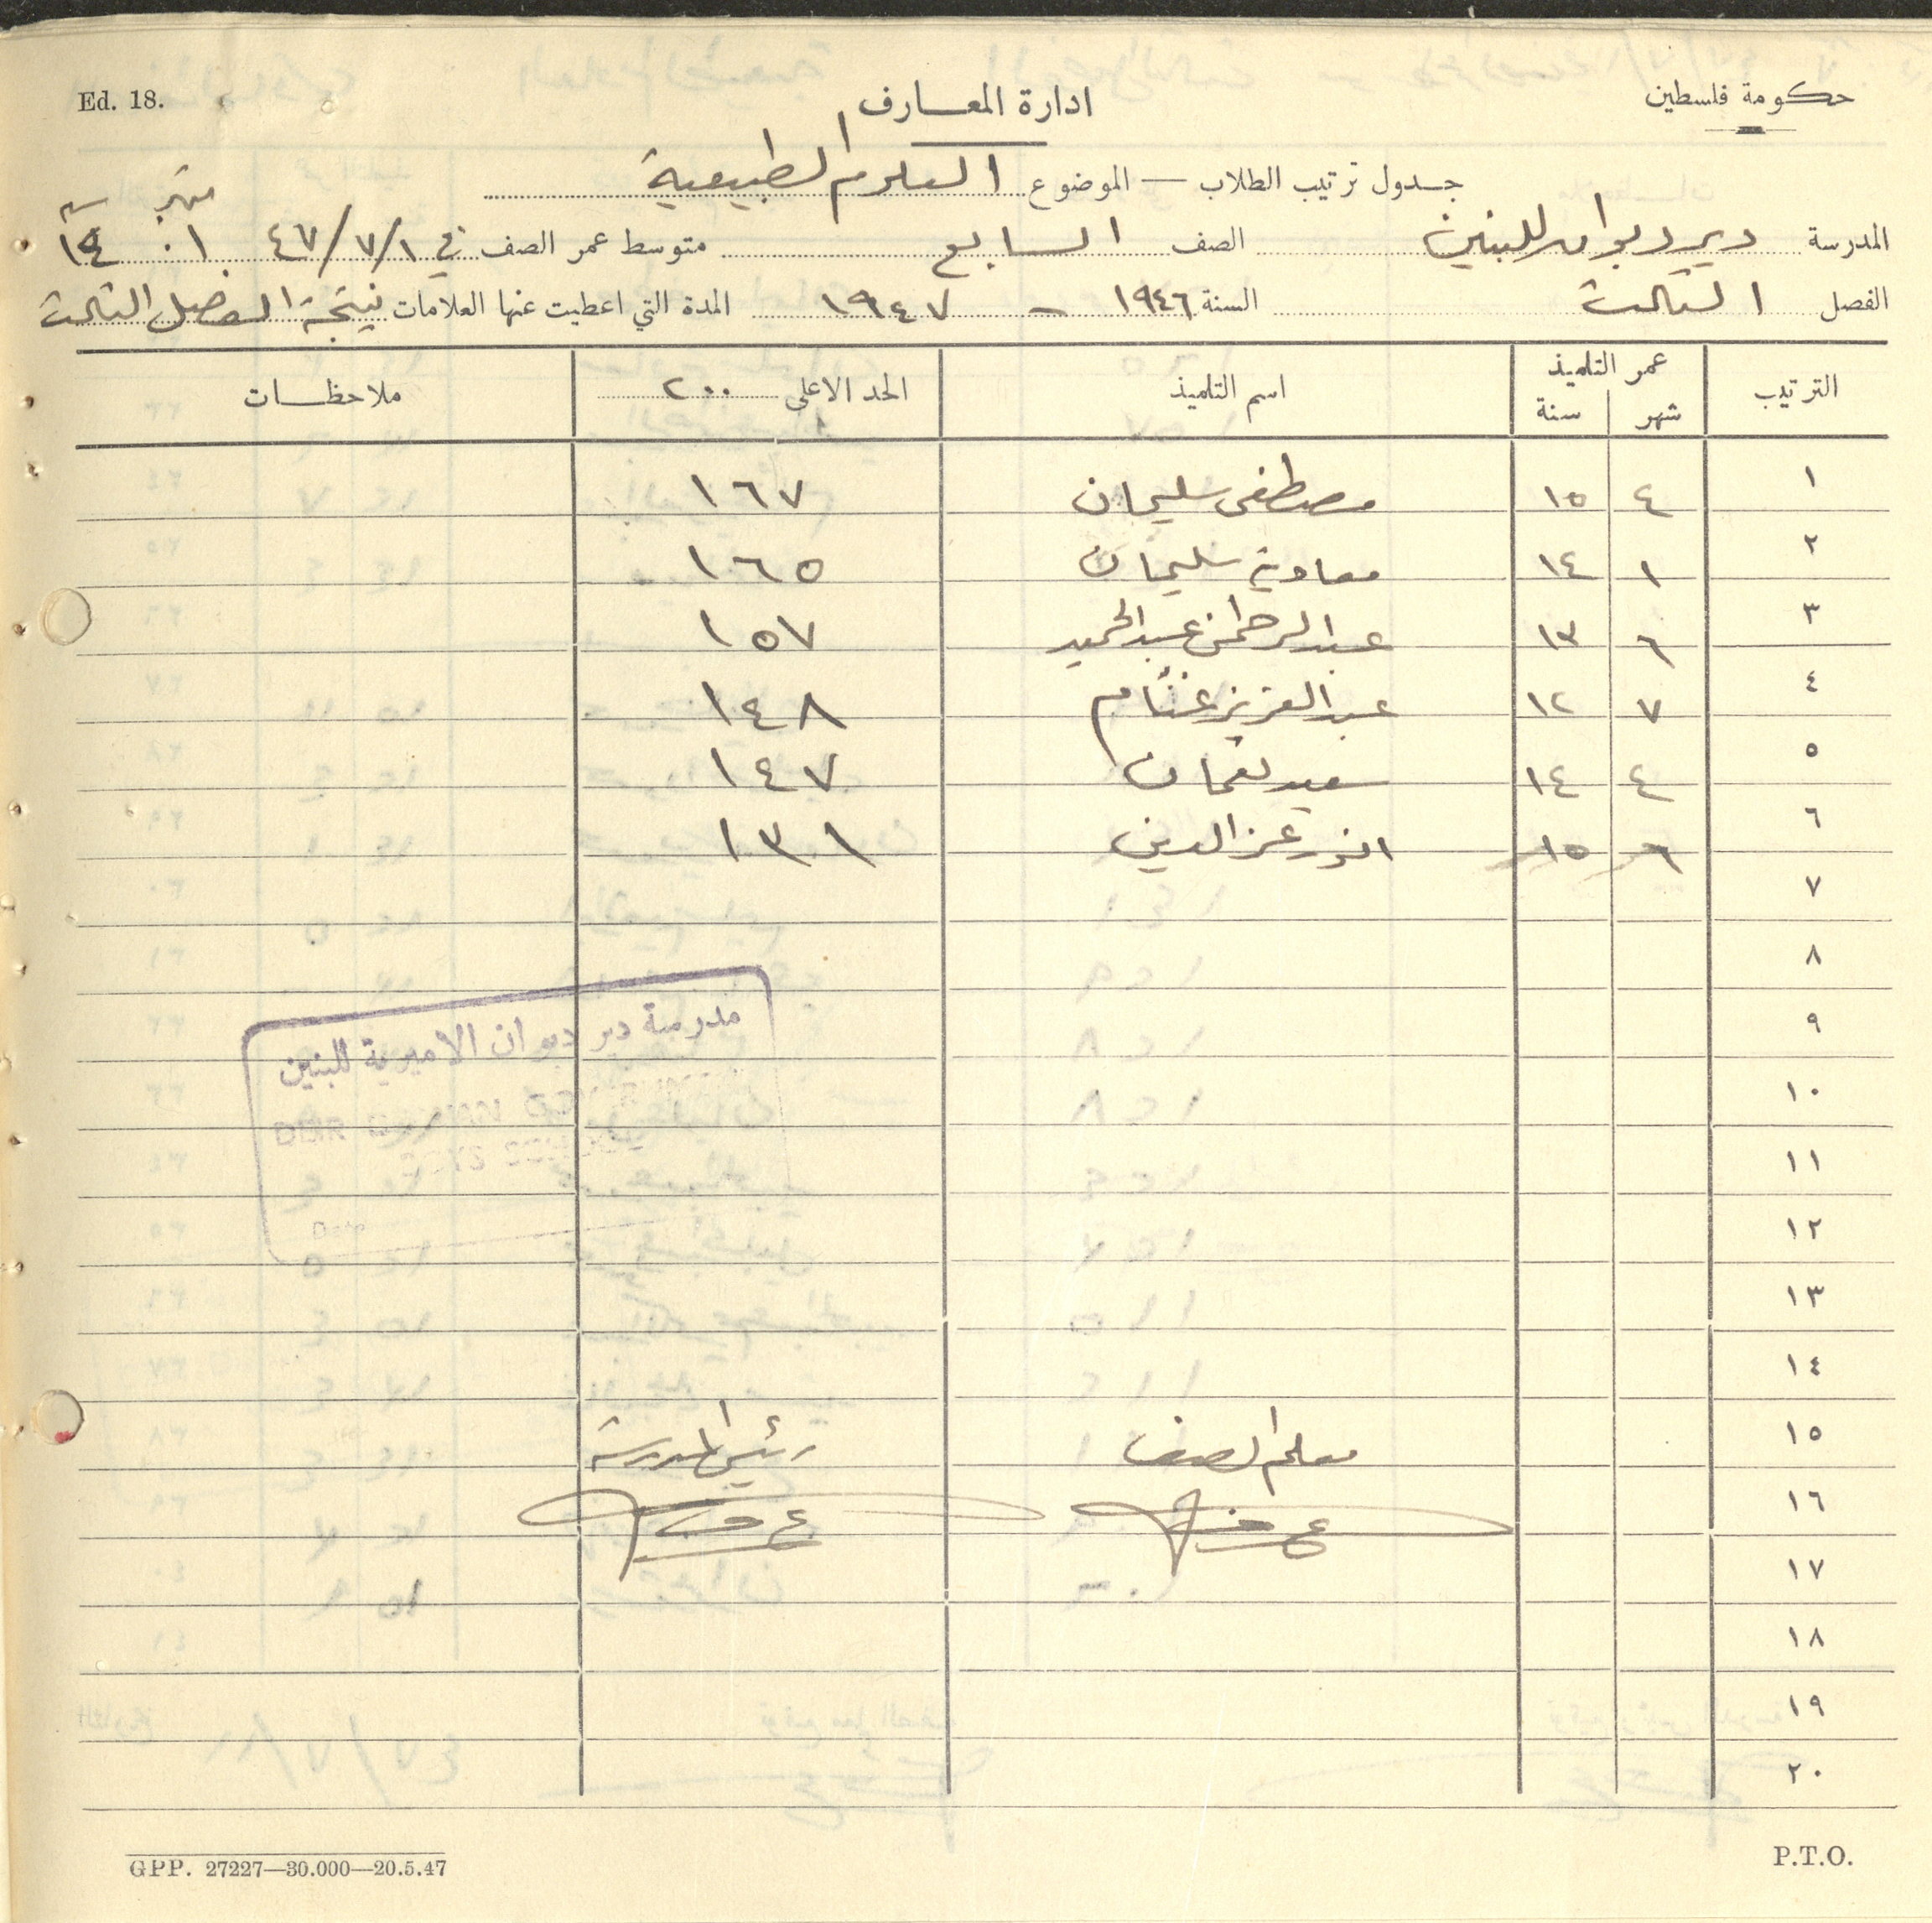 Ed. 18.
ادارة المعارف
حكومة فلسطين
جدول ترتيب الطلاب — الموضوع العلوم الطبيعية
المدرسة دير ديوان للبنين الصف السابع متوسط عمر الصف في ٤٧/٧/١ ١٠ شهر ١٤ سنة
الفصل الثالث السنة ١٩٤٦ - ١٩٤٧ المدة التي اعطيت عنها العلامات نتيجة الفصل الثالث
الترتيب عمر التلميذ اسم التلميذ الحد الاعلى ٢٠٠ ملاحظات
شهر سنة
١ ٤ ١٥ مصطفى سليمان ١٦٧
٢ ١ ١٤ معاوية سليمان ١٦٥
٣ ٦ ١٣ عبد الرحمن عبد الحميد ١٥٧
٤ ٧ ١٢ عبد العزيز غنام ١٤٨
٥ ٤ ١٤ سعيد نعمان ١٤٧
٦ ٦ ١٥ انور عز الدين ١٣١
٧
٨
٩
مدرسة دير ديوان الاميرية للبنين
١٠
DEIR DIWAN
١١
BOYS SCHOOL
١٢
Date
١٣
١٤
١٥ معلم الصف رئيس المدرسة
١٦
١٧
١٨
١٩
٢٠
GPP. 27227—30.000—20.5.47
P.T.O.